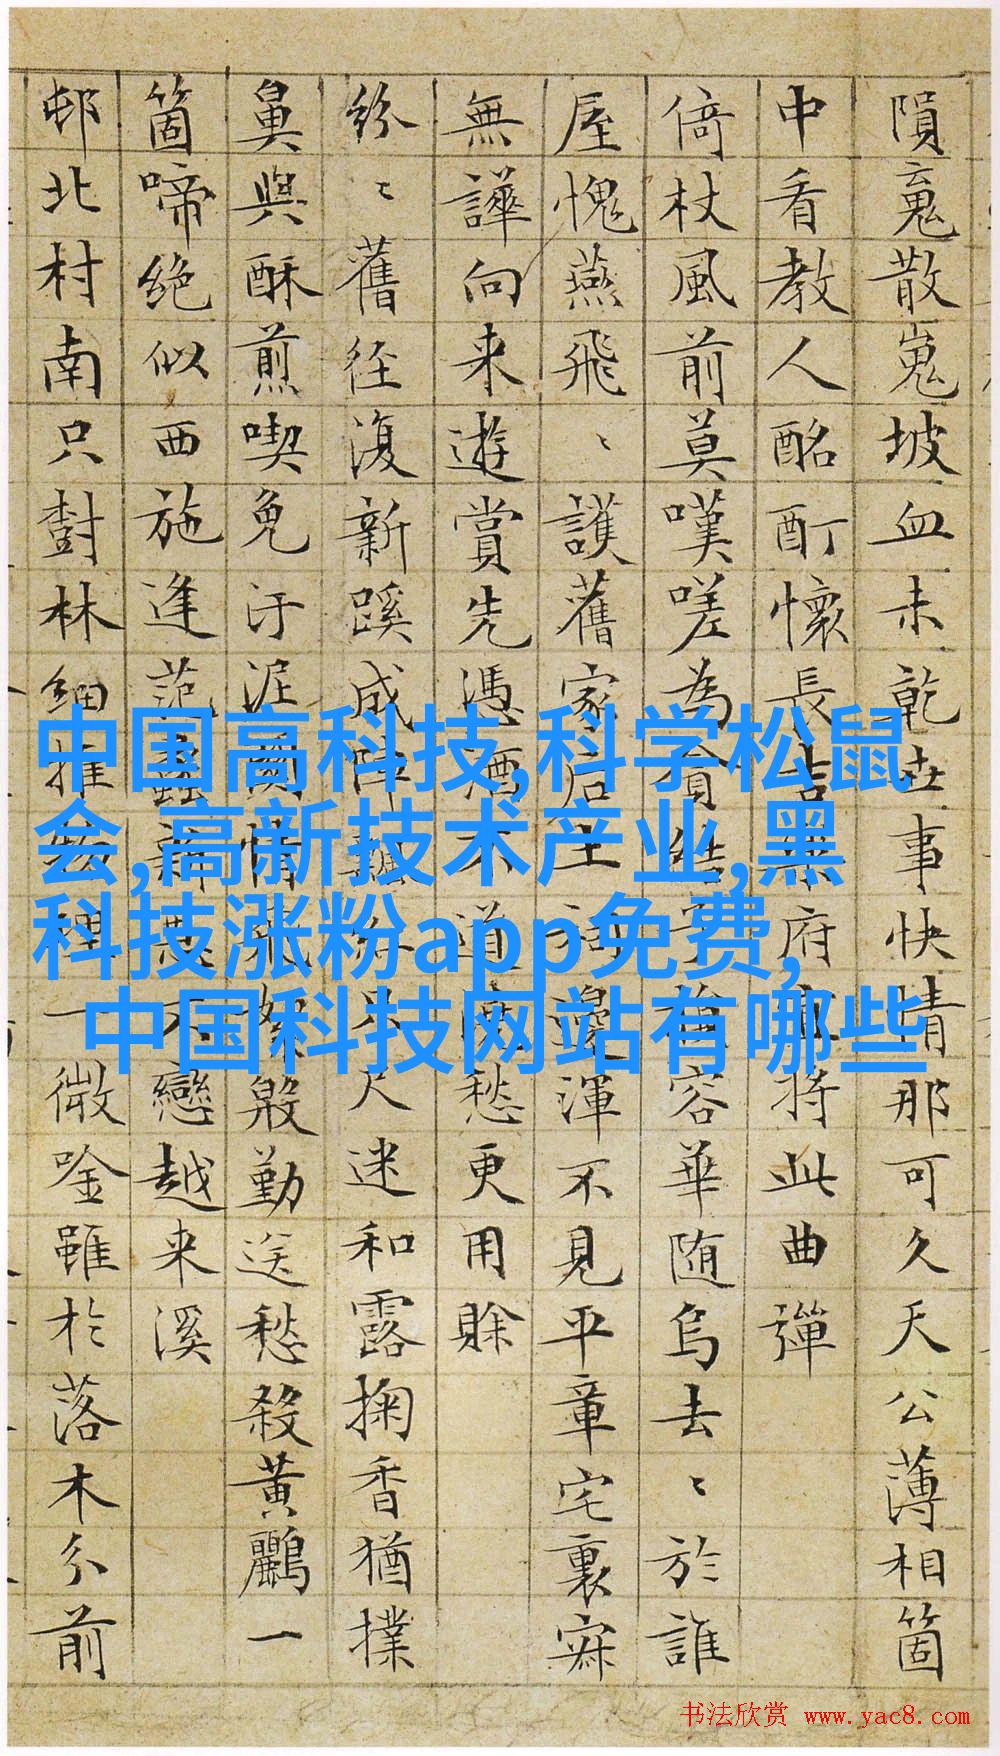 隕䰟散嵬坡血未乾世事快情那可久天公薄相箇
中看教人酩酊懷長吉府將此曲彈
倚杖風前莫嘆嗟為容華随烏去〻於誰
屋愧燕飛〻護舊家后土祠邊渾不見平章宅裏寂
無譁向来遊賞先憑酒不道愁更用賒
紛〻舊徑復新蹊成陣尺迷和露掬香猶撲
鼻與酥煎喫免汙泥情絮殷勤送愁殺黃鸝一
箇啼絕似西施逢范蠡新不戀越来溪
邨北村南只樹林細推物理一微唫雖於落木分前
中国高科技,科学松鼠
会,高新技术产业,黑
科技涨粉app免费,
中国科技网站有哪些
书法欣赏 www.yac8.com